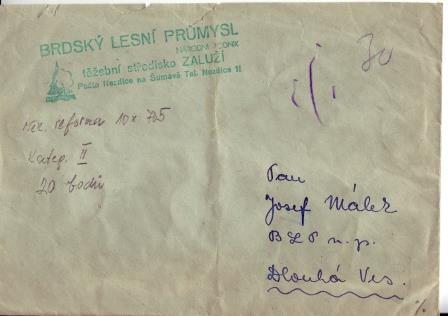 BRDSKÝ LESNÍ PRŮMYSL
NÁRODNÍ PODNIK
těžební středisko ZALUŽÍ
Pošta Nezdice na Šumavě Tel. Nezdice 11
30
reforma 10 x 705
Kateg. II
20 bodů
Pan
Josef Málek
BLP n.p.
Dlouhá Ves.